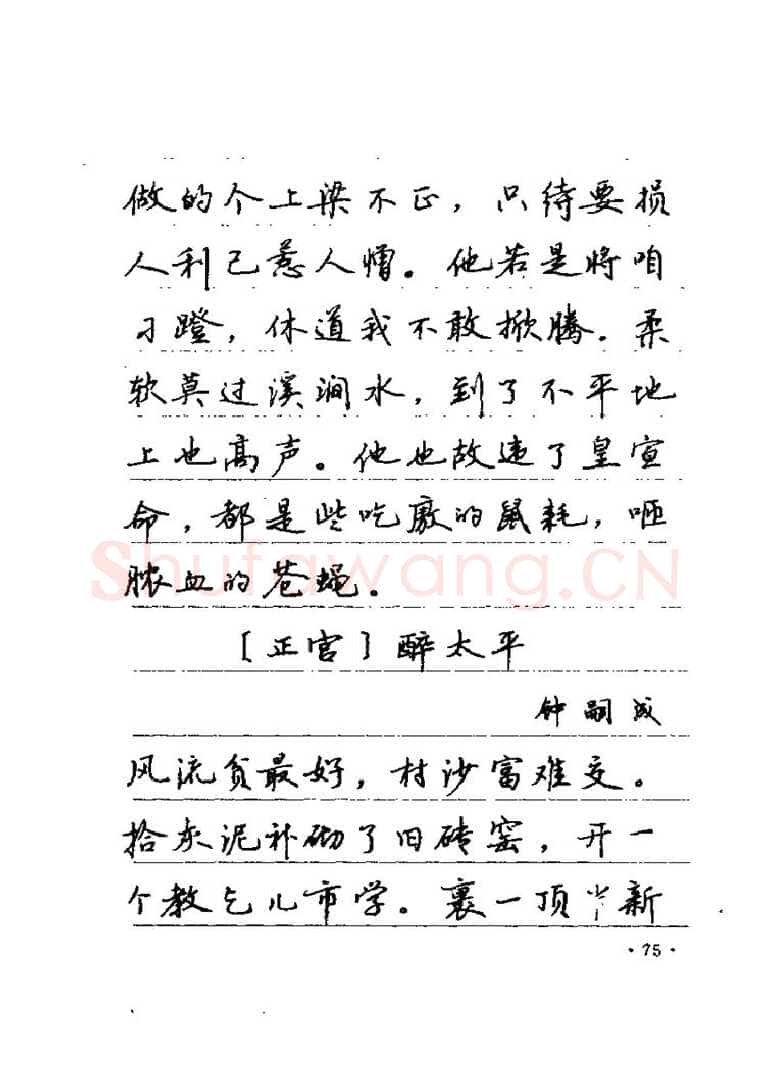 做的个上梁不正，只待要损
人利己惹人憎。他若是将咱
刁蹬，休道我不敢掀腾。柔
软莫过溪涧水，到了不平地
上也高声。他也故违了皇宣
命，都是些吃廒的鼠耗，咂
脓血的苍蝇。
〔正宫〕醉太平
钟嗣成
风流贫最好，村沙富难交。
拾灰泥补砌了旧砖窑，开一
个教乞儿市学。裹一顶半新
·75·
Shufawang.CN